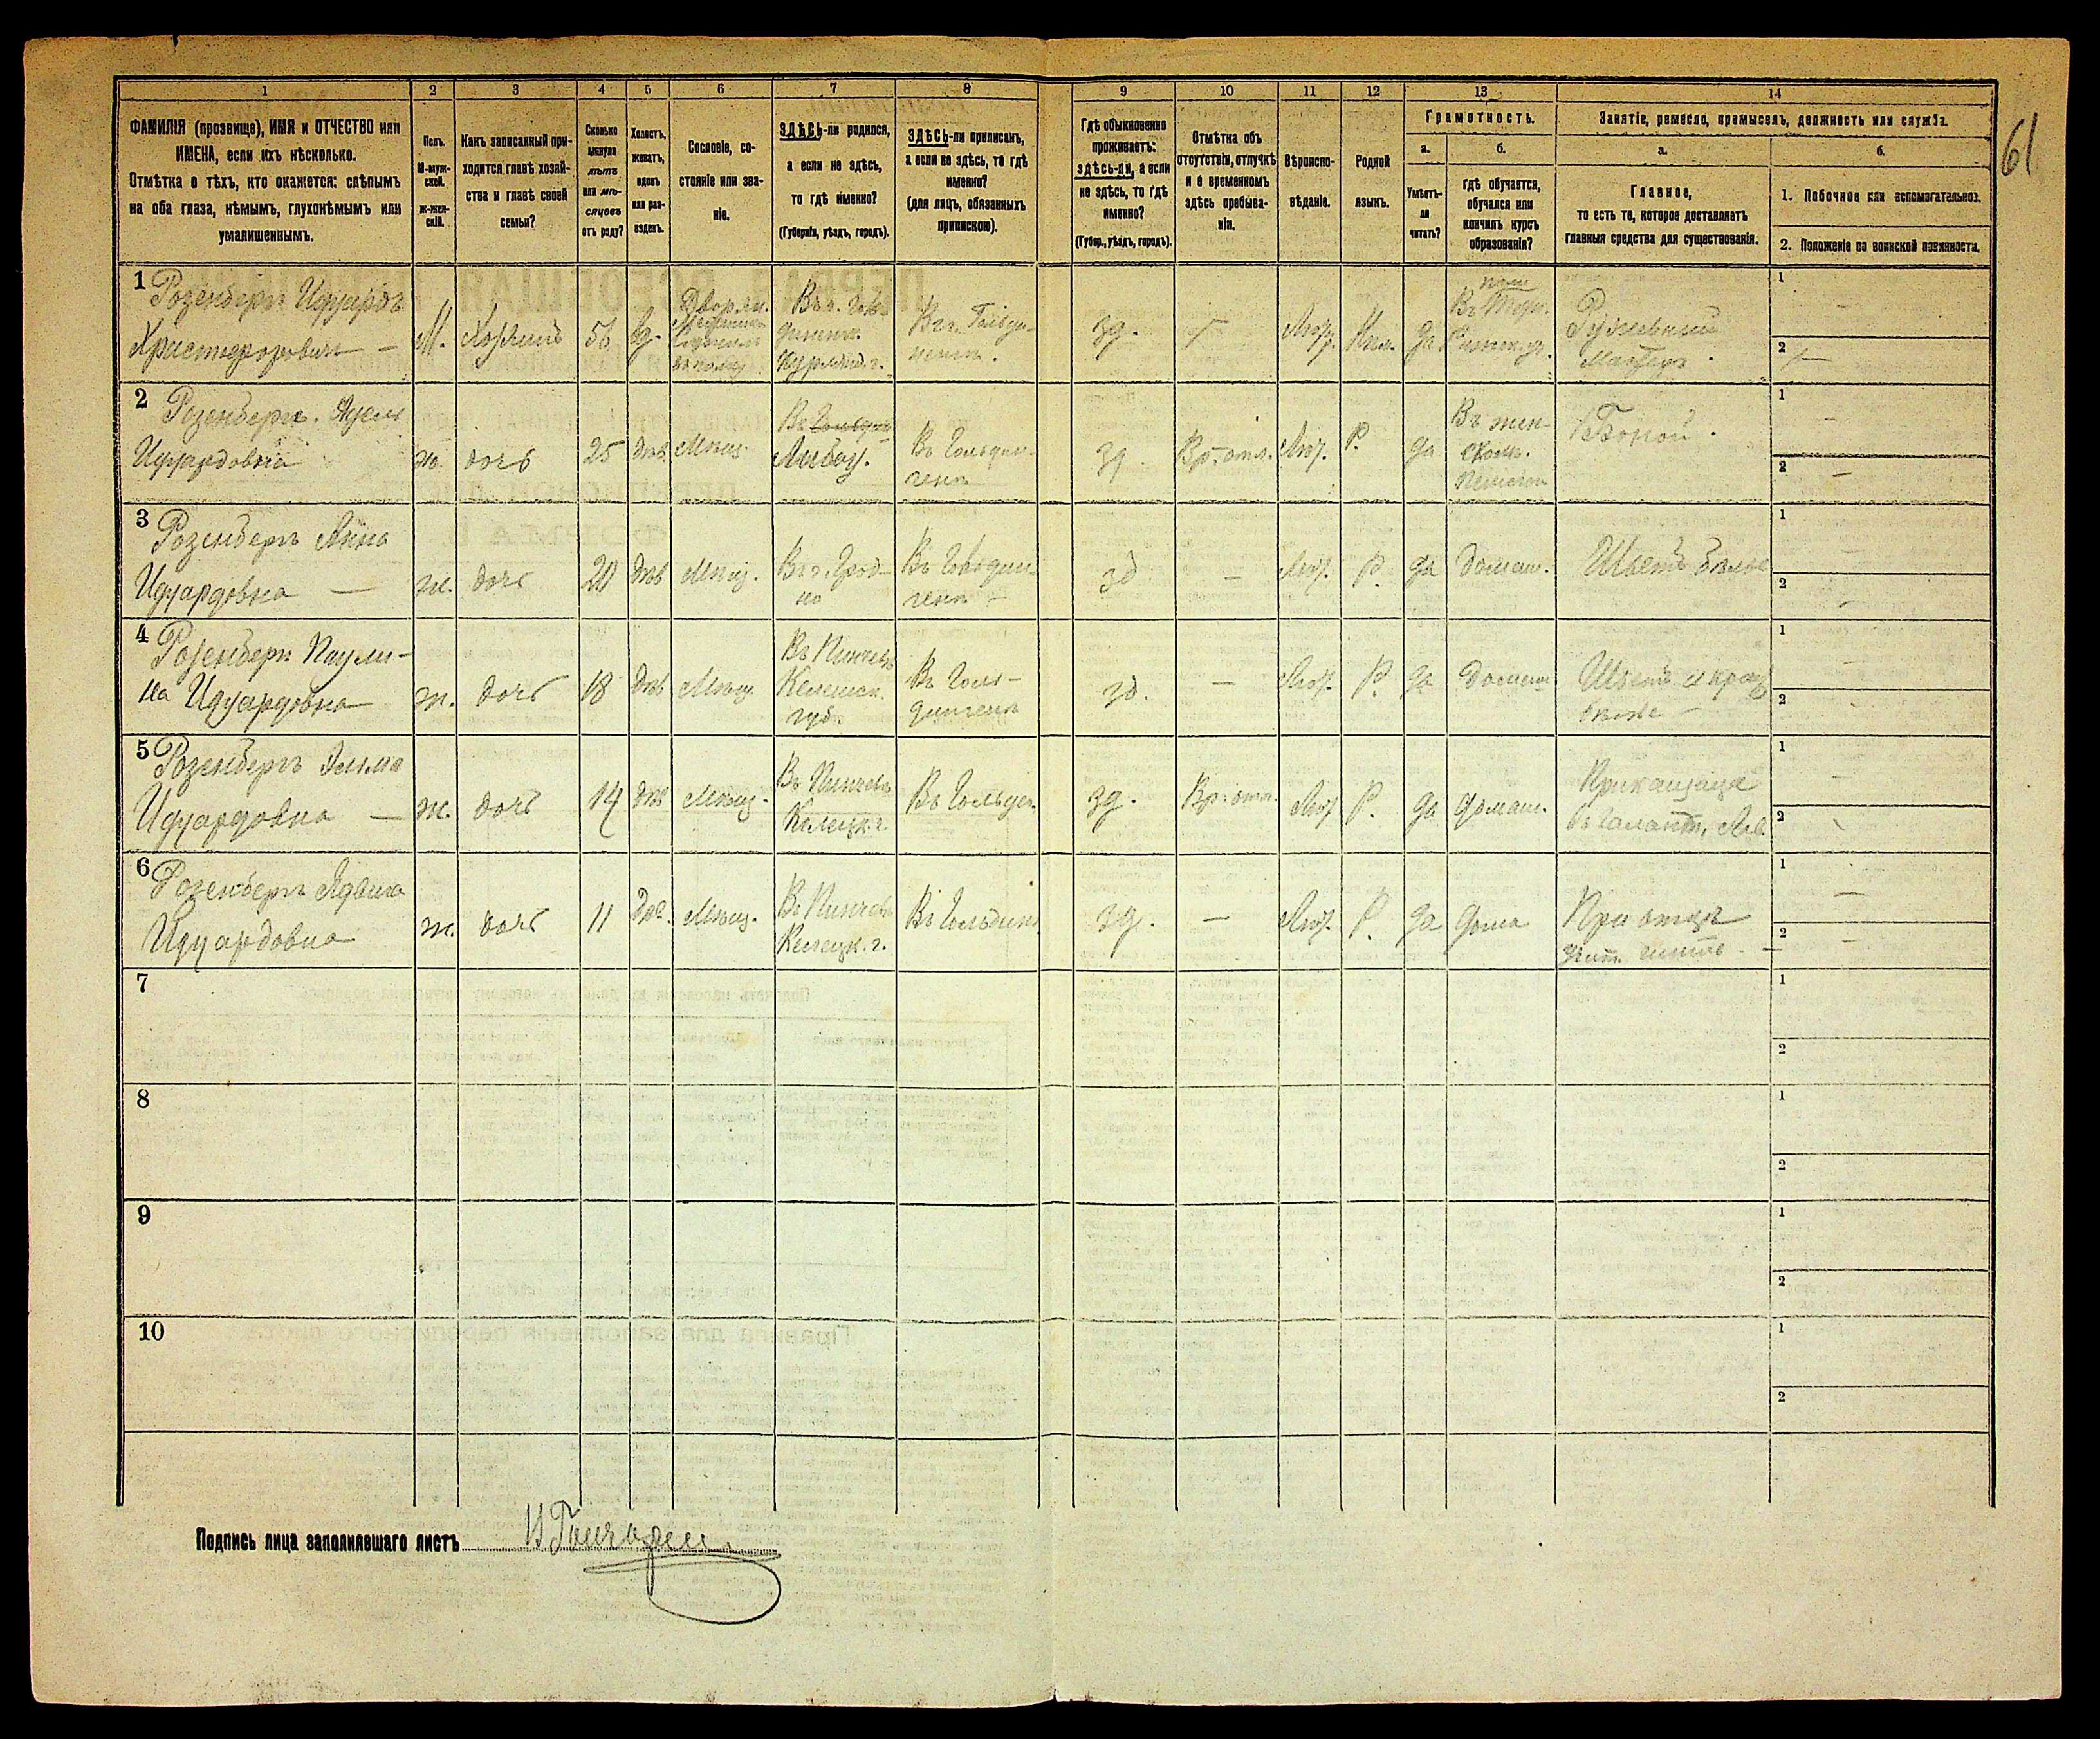 1 2 3 4 5 6 7 8 9 10 11 12 13 14
61
ФАМИЛІЯ (прозвище), ИМЯ и ОТЧЕСТВО или
ИМЕНА, если ихъ нѣсколько.
Отмѣтка о тѣхъ, кто окажется: слѣпымъ
на оба глаза, нѣмымъ, глухонѣмымъ или
умалишеннымъ.
Полъ.
М-муж-
ской.
ж-жен-
скій.
Какъ записанный при-
ходится главѣ хозяй-
ства и главѣ своей
семьи?
Сколько
минуло
лѣтъ
или мѣ-
сяцевъ
отъ роду?
Холостъ,
женатъ,
вдовъ
или раз-
веденъ.
Сословіе, со-
стояніе или зва-
ніе.
ЗДѢСЬ-ли родился,
а если не здѣсь,
то гдѣ именно?
(Губернія, уѣздъ, городъ).
ЗДѢСЬ-ли приписанъ,
а если не здѣсь, то гдѣ
именно?
(для лицъ, обязанныхъ
припискою).
Гдѣ обыкновенно
проживаетъ:
здѣсь-ли, а если
не здѣсь, то гдѣ
именно?
(Губер., уѣздъ, городъ).
Отмѣтка объ
отсутствіи, отлучкѣ
и о временномъ
здѣсь пребыва-
ніи.
Вѣроиспо-
вѣданіе.
Родной
языкъ.
Грамотность.
а.
Умѣетъ-
ли
читать?
б.
Гдѣ обучается,
обучался или
кончилъ курсъ
образованія?
Занятіе, ремесло, промыселъ, должность или служба.
а.
Главное,
то есть то, которое доставляетъ
главныя средства для существованія.
б.
1. Побочное или вспомогательное.
2. Положеніе по воинской повинности.
1
Розенбергъ Идуардъ
Христофоровичъ —
М.
Хозяинъ
56
вд.
Въ г. Голь-
Курлянд. г.
Въ г. Гольди-
генъ.
зд.
Лют.
Нѣм.
да
Мастеръ.
1
2
2
Розенбергъ. Адель
Идуардовна
ж.
дочь
25
дѣв.
Мѣщ.
Либау.
Въ Гольдин-
генъ
зд.
Вр. отл.
Лют.
Р.
да
Въ жен-
школ.
Боной.
1
2
3
Розенбергъ Анна
Идуардовна —
ж.
дочь
20
дѣв
Мѣщ.
Въ г. Грод-
но
Въ Гольдин-
генъ —
зд
—
Лют.
Р.
да
домаш.
Шьетъ бѣлье
1
2
4
Розенбергъ Паули-
на Идуардовна
ж.
дочь
18
дѣв
Мѣщ.
Въ Пинчевъ
губ.
Въ Голь-
дингенъ
зд.
—
Лют.
Р.
да
домаш
1
2
5
Розенбергъ Эмма
Идуардовна —
ж.
дочь
14
дѣв
Мѣщ.
Въ Пинчевъ
Келецк. г.
Въ Гольдин.
зд.
Вр. отл.
Лют
Р.
да
домаш.
Прикащица
1
2
6
Розенбергъ Ядвига
Идуардовна
ж.
дочь
11
Дѣв.
Мѣщ.
Въ Пинчевъ
Келецк. г.
Въ Гольдин.
зд.
—
Лют.
Р.
да
дома
При отцѣ
1
2
7
1
2
8
1
2
9
1
2
10
1
2
Подпись лица заполнявшаго листъ